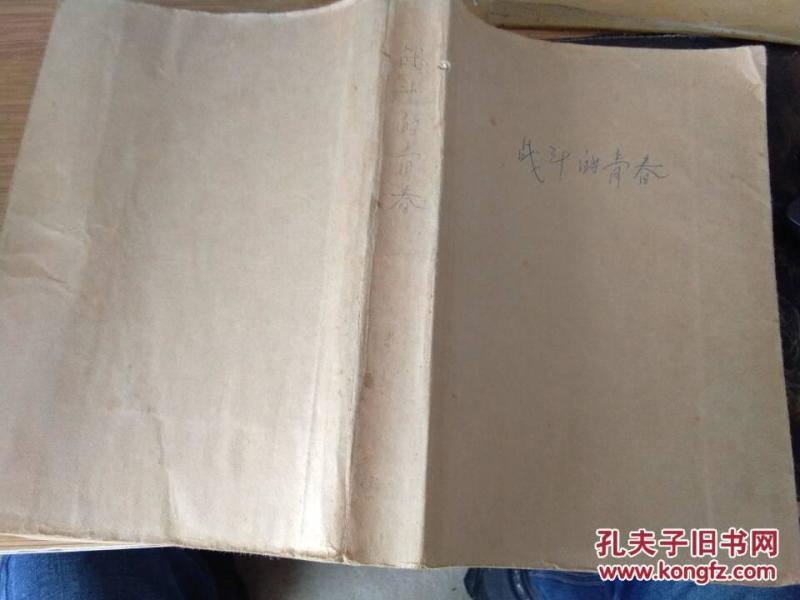 战斗的青春
战斗的青春
孔夫子旧书网
www.kongfz.com